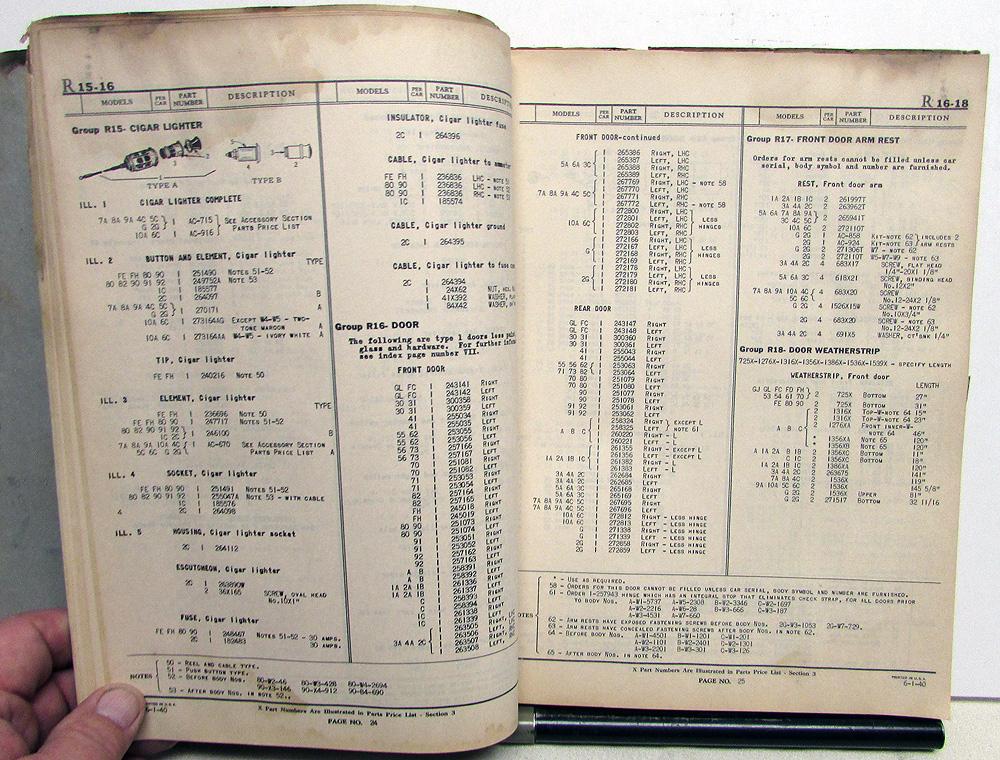 R 15-16
MODELS PER CAR PART NUMBER DESCRIPTION
Group R15- CIGAR LIGHTER
3 2 4 3 2
1
TYPE A TYPE B
ILL. 1 CIGAR LIGHTER COMPLETE
7A 8A 9A 4C 5C G 2G 1 AC-715 SEE ACCESSORY SECTION
10A 6C 1 AC-916 PARTS PRICE LIST
ILL. 2 BUTTON AND ELEMENT, Cigar lighter
FE FH 80 90 1 251490 NOTES 51-52
80 82 90 91 92 1 249752A NOTE 53
1C 1 185577
2C 1 264097 B
7A 8A 9A 4C 5C G 2G 1 270171 A
10A 6C 1 273164AG EXCEPT W4-W5 - TWO-TONE MAROON A
10A 6C 1 273164AA W4-W5 - IVORY WHITE A
TIP, Cigar lighter
FE FH 1 240216 NOTE 50
ILL. 3 ELEMENT, Cigar lighter TYPE
FE FH 1 236696 NOTE 50
FE FH 80 90 1 247717 NOTES 51-52
80 82 90 91 92 1C 2C 1 246100 B
7A 8A 9A 10A 4C 5C 6C G 2G 1 AC-670 SEE ACCESSORY SECTION PARTS PRICE LIST A
ILL. 4 SOCKET, Cigar lighter
FE FH 80 90 1 251491 NOTES 51-52
80 82 90 91 92 1 255047A NOTE 53 - WITH CABLE
1C 1 185576
4 2C 1 264098
ILL. 5 HOUSING, Cigar lighter socket
2C 1 264112
ESCUTCHEON, Cigar lighter
2C 1 263890W
2 36X165 SCREW, OVAL HEAD
No.10X1"
FUSE, Cigar lighter
FE FH 80 90 1 248467 NOTES 51-52 - 30 AMPS.
2C 1 182483 30 AMPS.
NOTES
50 - REEL AND CABLE TYPE.
51 - PUSH BUTTON TYPE.
52 - BEFORE BODY NOS. 80-W2-46 80-W3-428 80-W4-2694
90-X3-146 90-X4-912 90-B4-690
53 - AFTER BODY NOS. IN NOTE 52.
X Part Numbers Are Illustrated in Parts Price List - Section 3
6-1-40
PAGE NO. 24
MODELS PER CAR PART NUMBER
INSULATOR, Cigar lighter fuse
2C 1 264396
CABLE, Cigar lighter to ammeter
FE FH 1 236836 LHC - NOTE
80 90 1 236836 RHC - NOTE
80 90 1 236836 RHC - NOTE
1C 1 185574
CABLE, Cigar lighter ground
2C 1 264395
CABLE, Cigar lighter to fuse
2C 1 264394
24X62 NUT,
41X392 WASHER,
84X42 WASHER,
Group R16- DOOR
The following are type 1 doors less
glass and hardware. For further
see index page number VII.
FRONT DOOR
GL FC 1 243141 RIGHT
GL FC 1 243142 LEFT
30 31 1 300358 RIGHT
30 31 1 300359 LEFT
41 1 255034 RIGHT
41 1 255035 LEFT
55 62 1 253055 RIGHT
55 62 1 253056 LEFT
56 73 1 257166 RIGHT
56 73 1 257167 LEFT
70 1 251081 RIGHT
70 1 251082 LEFT
71 1 253053 RIGHT
71 1 253054 LEFT
82 1 257164 RIGHT
82 1 257165 LEFT
FH 1 245018 RIGHT
FH 1 245019 LEFT
80 90 1 251073 RIGHT
80 90 1 251074 LEFT
91 1 253051 RIGHT
91 1 253052 LEFT
92 1 257162 RIGHT
92 1 257163 LEFT
A B 1 258391 RIGHT
A B 1 258392 LEFT
1A 2A 1B 1 261336 RIGHT
1A 2A 1B 1 261337 LEFT
C 1 258393 RIGHT
C 1 258394 LEFT
1C 1 261338 RIGHT
1C 1 261339 LEFT
3A 4A 2C 263505
263506
263507
263508
R 16-18
MODELS PER CAR PART NUMBER DESCRIPTION
FRONT DOOR-continued
5A 6A 3C 1 265386 RIGHT, LHC
1 265387 LEFT, LHC
1 265388 RIGHT, RHC
1 265389 LEFT, RHC
7A 8A 9A 4C 5C 1 267769 RIGHT, LHC - NOTE 58
1 267770 LEFT, LHC
1 267771 RIGHT, RHC
1 267772 LEFT, RHC - NOTE 58
10A 6C 1 272800 RIGHT, LHC LESS HINGES
1 272801 LEFT, LHC
1 272802 RIGHT, RHC
1 272803 LEFT, RHC
G 1 272166 RIGHT, LHC LESS HINGES
1 272167 LEFT, LHC
1 272168 RIGHT, RHC
1 272169 LEFT, RHC
2G 1 272178 RIGHT, LHC LESS HINGES
1 272179 LEFT, LHC
1 272180 RIGHT, RHC
1 272181 LEFT, RHC
REAR DOOR
GL FC 1 243147 RIGHT
GL FC 1 243148 LEFT
30 31 1 300360 RIGHT
30 31 1 300361 LEFT
41 1 255043 RIGHT
41 1 255044 LEFT
55 56 62 71 73 82 1 253063 RIGHT
1 253064 LEFT
70 80 1 251079 RIGHT
70 80 1 251080 LEFT
90 1 251077 RIGHT
90 1 251078 LEFT
91 92 1 253061 RIGHT
91 92 1 253062 LEFT
A B C 1 258324 RIGHT EXCEPT L
1 258325 LEFT NOTE 61
1 260220 RIGHT - L
1 260221 LEFT - L
1A 2A 1B 1C 1 261355 RIGHT - EXCEPT L
1 261356 LEFT - EXCEPT L
1 261382 RIGHT - L
1 261383 LEFT - L
3A 4A 2C 1 262684 RIGHT
3A 4A 2C 1 262685 LEFT
5A 6A 3C 1 265168 RIGHT
5A 6A 3C 1 265169 LEFT
7A 8A 9A 4C 5C 1 267695 RIGHT
7A 8A 9A 4C 5C 1 267696 LEFT
10A 6C 1 272812 RIGHT - LESS HINGE
10A 6C 1 272813 LEFT - LESS HINGE
G 1 271338 RIGHT - LESS HINGE
G 1 271339 LEFT - LESS HINGE
2G 1 272858 RIGHT - LESS HINGE
2G 1 272859 LEFT - LESS HINGE
MODELS PER CAR PART NUMBER DESCRIPTION
Group R17- FRONT DOOR ARM REST
Orders for arm rests cannot be filled unless car
serial, body symbol and number are furnished.
REST, Front door arm
1A 2A 1B 1C 2 261997T
3A 4A 2C 2 263962T
5A 6A 7A 8A 9A 3C 4C 5C 2 265941T
10A 6C 2 272110T
G 2G 1 AC-858 KIT-NOTE 62 INCLUDES 2
G 2G 1 AC-924 KIT-NOTE 63 ARM RESTS
G 2G 2 271306T W7 - NOTE 62
G 2G 2 272110T W5-W7-W9 - NOTE 63
3A 4A 2C 4 683X17 SCREW, FLAT HEAD
1/4"-20X1 1/8"
5A 6A 3C 4 618X21 SCREW, BINDING HEAD
No.12X2"
7A 8A 9A 10A 4C 5C 6C 4 683X20 SCREW
No.12-24X2 1/8"
G 2G 4 1526X15W SCREW - NOTE 62
No.10X3/4"
2G 4 683X20 SCREW - NOTE 63
No.12-24X2 1/8"
3A 4A 2C 4 691X5 WASHER, CT'SNK 1/4"
Group R18- DOOR WEATHERSTRIP
725X-1276X-1316X-1356X-1386X-1536X-1539X - SPECIFY LENGTH
WEATHERSTRIP, Front door
LENGTH
GJ GL FC FD FH 53 54 61 70 2 725X BOTTOM 27"
FE 80 90 2 725X BOTTOM 31"
A B C 2 1316X TOP-W-NOTE 64 15"
2 1316X TOP-W-NOTE 64 23"
2 1276XA FRONT INNER-W-
NOTE 64 46"
* 1356XA NOTE 65 120"
* 1356X NOTE 65 120"
A 1A 2A B 1B 2 1356XC BOTTOM 11"
C 1C 2 1356X BOTTOM 18"
1A 2A 1B 1C 2 1386XA 120"
3A 4A 2C 2 263675 141"
7A 8A 4C 2 1536X 119"
9A 10A 5C 6C 2 1536X 145 5/8"
G 2G 2 1536X UPPER 81"
G 2G 2 271517 BOTTOM 32 11/16
NOTES
* - USE AS REQUIRED.
58 - ORDERS FOR THIS DOOR CANNOT BE FILLED UNLESS CAR SERIAL, BODY SYMBOL AND NUMBER ARE FURNISHED.
61 - ORDER 1-257943 HINGE WHICH HAS AN INTEGRAL STOP THAT ELIMINATES CHECK STRAP, FOR ALL DOORS PRIOR
TO BODY NOS. A-W1-5737 A-W3-2308 B-W2-3346 C-W2-1697
A-W2-2216 A-W6-28 B-W3-666 C-W3-187
A-W3-4531 A-W7-660
62 - ARM RESTS HAVE EXPOSED FASTENING SCREWS BEFORE BODY NOS. 2G-W3-1053 2G-W7-729.
63 - ARM RESTS HAVE CONCEALED FASTENING SCREWS AFTER BODY NOS. IN NOTE 62.
64 - BEFORE BODY NOS. A-W1-4501 B-W1-1201 C-W1-201
A-W2-1101 B-W2-2401 C-W2-1301
A-W3-2201 B-W3-301 C-W3-126
65 - AFTER BODY NOS. IN NOTE 64.
X Part Numbers Are Illustrated in Parts Price List - Section 3
PRINTED IN U.S.A.
PAGE NO. 25 6-1-40